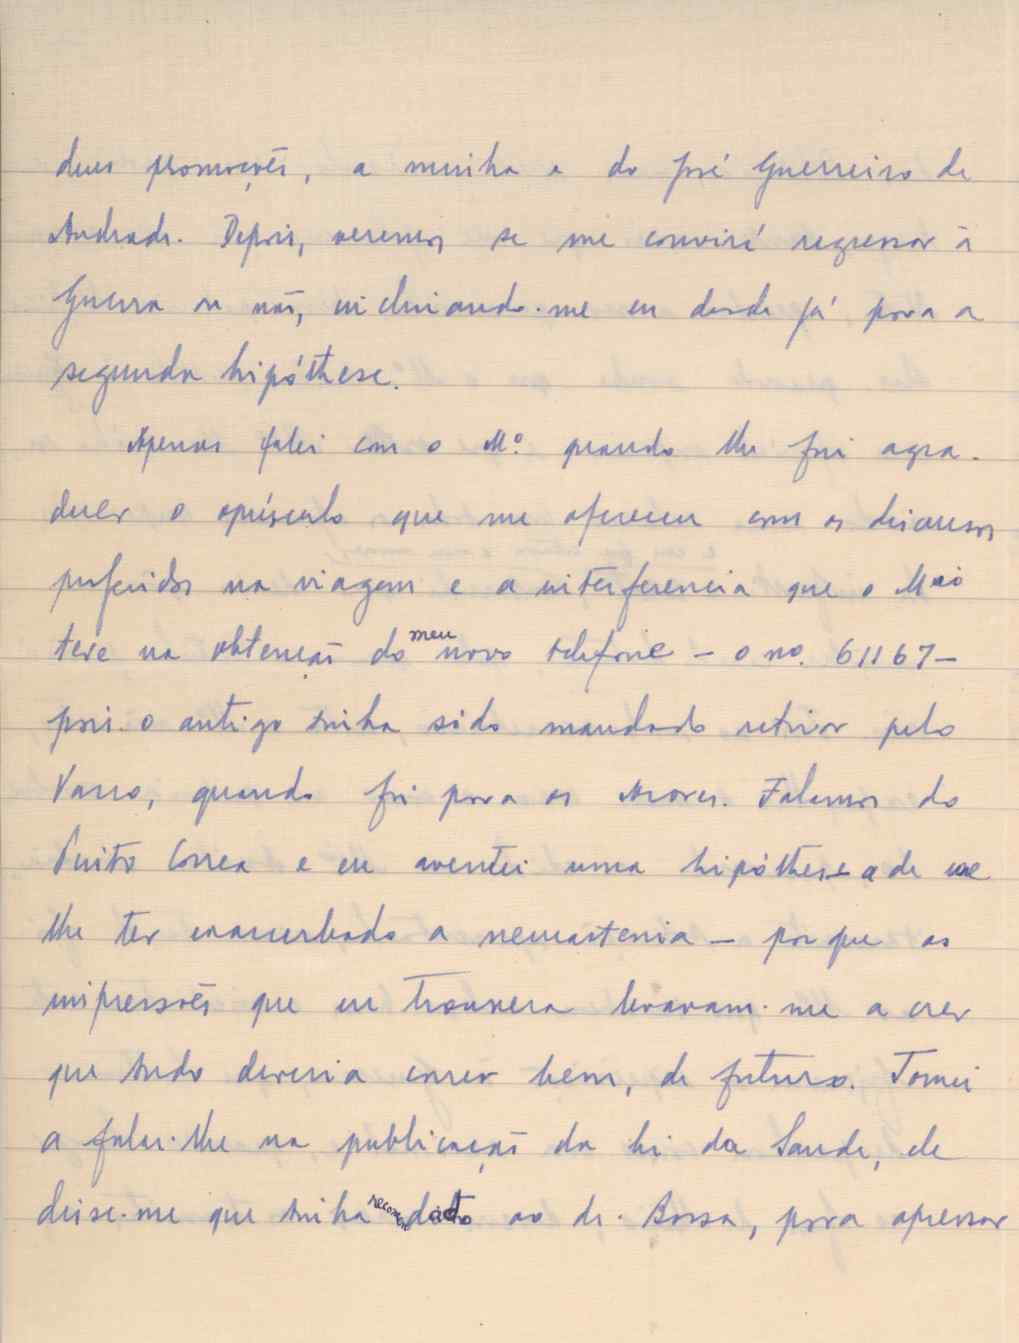 duas promoções, a minha e do José Guerreiro de
Andrade. Depois, veremos se me convirá regressar à
Guerra ou não, inclinando-me eu desde já para a
segunda hipóthese.
Apenas falei com o Mº. quando lhe fui agra-
decer o opúsculo que me ofereceu com os discursos
proferidos na viagem e a interferencia que o
teve na obtenção do meu novo telefone – o no. 61167 –
pois o antigo tinha sido mandado retirar pelo
Vasco, quando foi para os Açores. Falamos do
Pinto Correa e eu aventei uma hipóthese a de se
lhe ter exacerbado a neurastenia – porque as
impressões que eu trouxera levavam-me a crer
que tudo deveria correr bem, de futuro. Tornei
a falar-lhe na publicação da lei da Saude, ele
disse-me que tinha recomendado ao dr. Bossa, para apressar